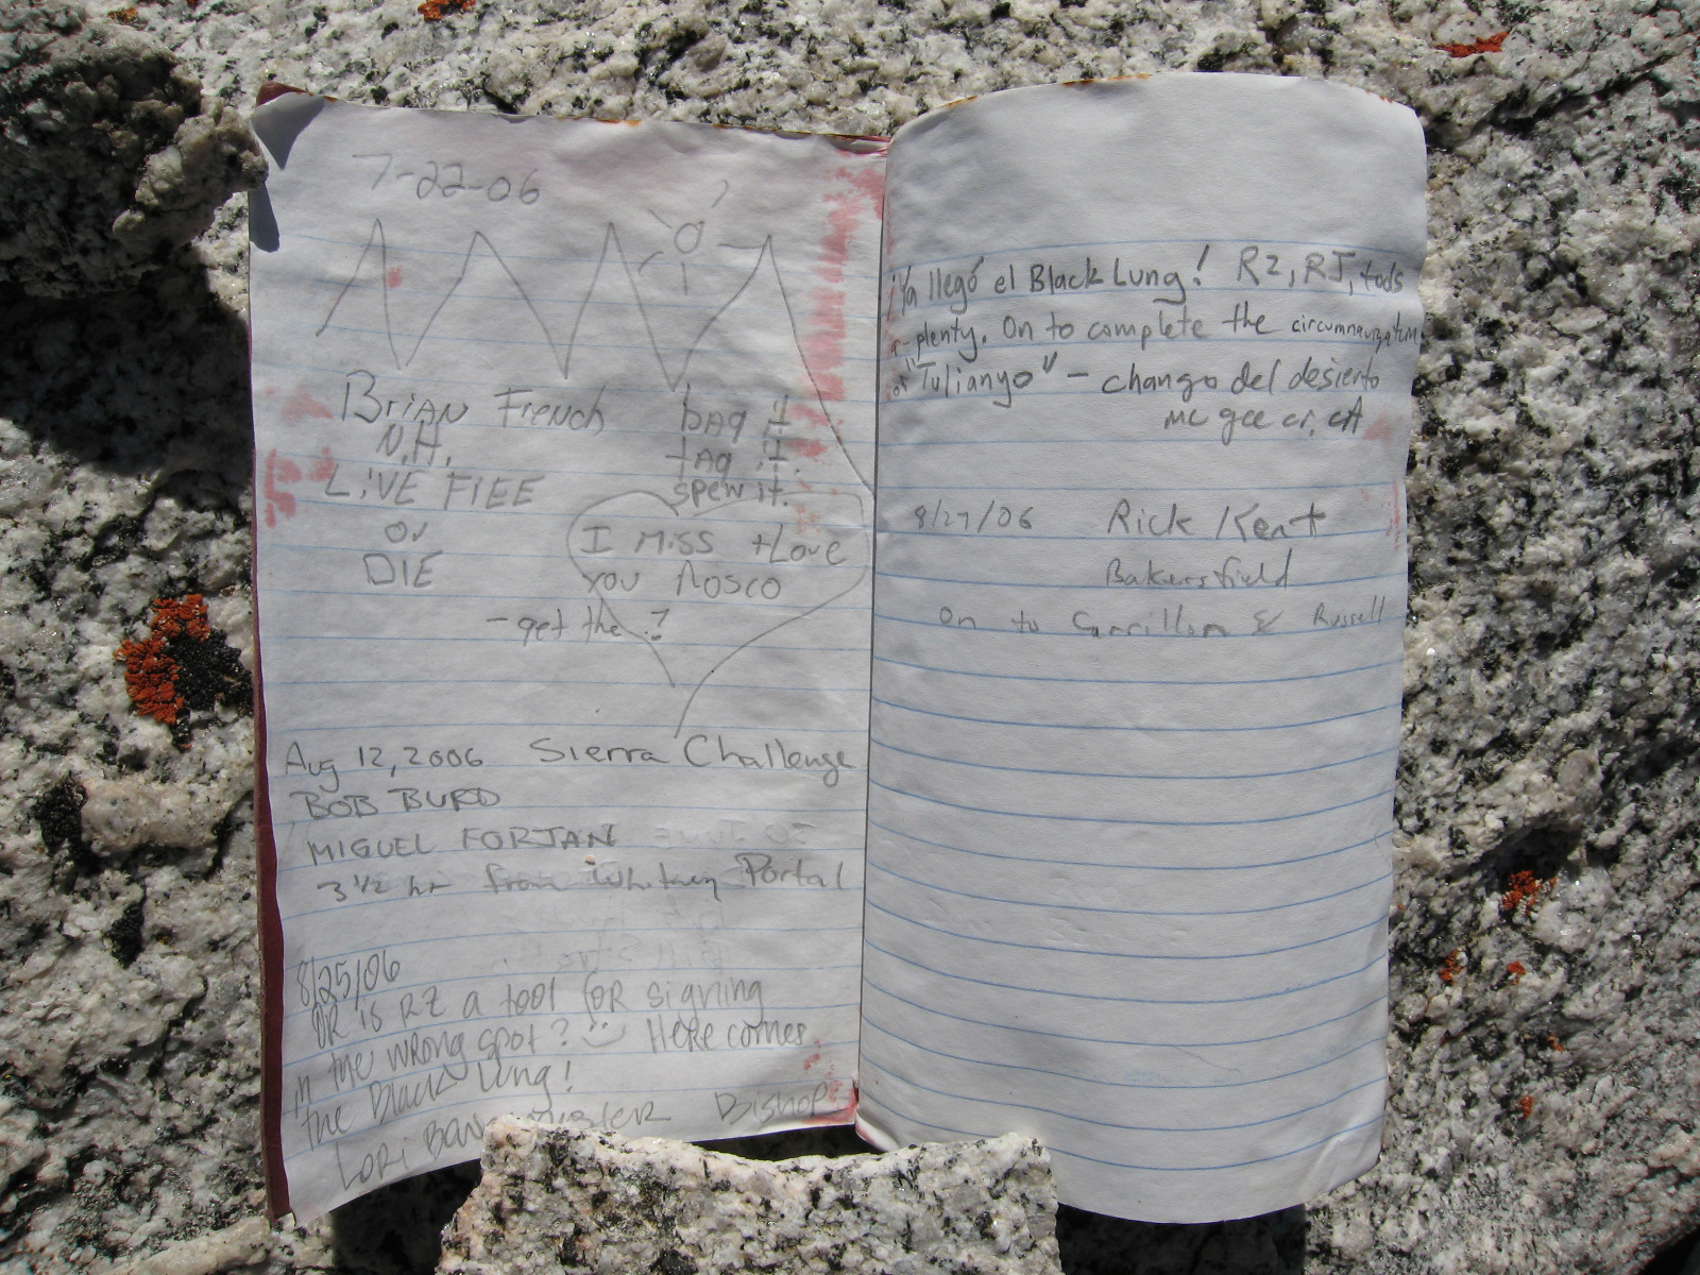 7-22-06
BRIAN French
N.H.
LIVE FIEE
or
DIE
bag it
tag it.
spew it.
I Miss + Love
you Rosco
- get the ?
Aug 12, 2006 Sierra Challenge
BOB BURD
MIGUEL FORJAN
3 1/2 hr from Whitney Portal
8/25/06
OR is RZ a tool for signing
in the wrong spot? Here comes
the Black Lung!
Lori Bishop
¡Ya llegó el Black Lung! RZ, RJ, tods
plenty. On to complete the circumnavigation
of "Tulianyo" - chango del desierto
mc gee cr, cA
8/27/06 Rick Kent
Bakersfield
on to Carrillon & Russell